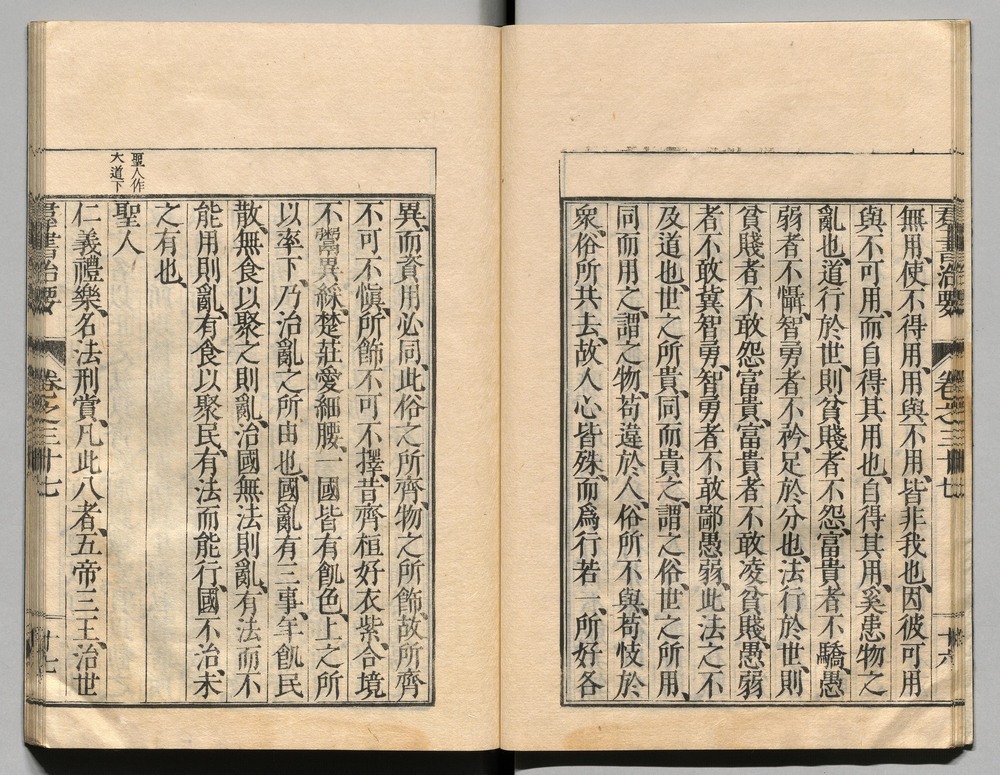 羣書治要 卷之三十七 十六
無用、使不得用、用與不用、皆非我也、因彼可用
與不可用、而自得其用也、自得其用、奚患物之
亂也、道行於世、則貧賤者不怨、富貴者不驕、愚
弱者不懾、智勇者不矜、足於分也、法行於世、則
貧賤者不敢怨富貴、富貴者不敢凌貧賤、愚弱
者不敢冀智勇、智勇者不敢鄙愚弱、此法之不
及道也、世之所貴、同而貴之、謂之俗、世之所用、
同而用之、謂之物、苟違於人、俗所不與、苟忮於
衆、俗所共去、故人心皆殊、而爲行若一、所好各
異、而資用必同、此俗之所齊、物之所飾、故所齊
不可不愼、所飾不可不擇、昔齊桓好衣紫、合境
不鬻異綵、楚莊愛細腰、一國皆有飢色、上之所
以率下、乃治亂之所由也、國亂有三事、年飢民
散、無食以聚之則亂、治國無法則亂、有法而不
能用則亂、有食以聚民、有法而能行、國不治、未
之有也、
聖人作
大道下
聖人
仁義禮樂、名法刑賞、凡此八者、五帝三王、治世
羣書治要 卷之三十七 十七